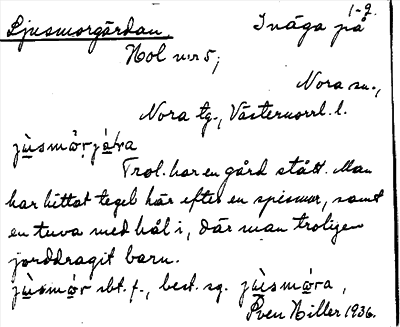 1-9.
Ljusmorgårdan. Inäga på
Hol nr 5,
Nora sn.,
Nora tg., Västernorrl. l.
jùsmòrjáɽa
Trol. har en gård stått. Man
har hittat tegel här efter en spismur, samt
en tuva med hål i, där man troligen
jorddragit barn.
jùsmòr sbt. f., best. sg. jùsmòra,
Sven Hiller 1936.